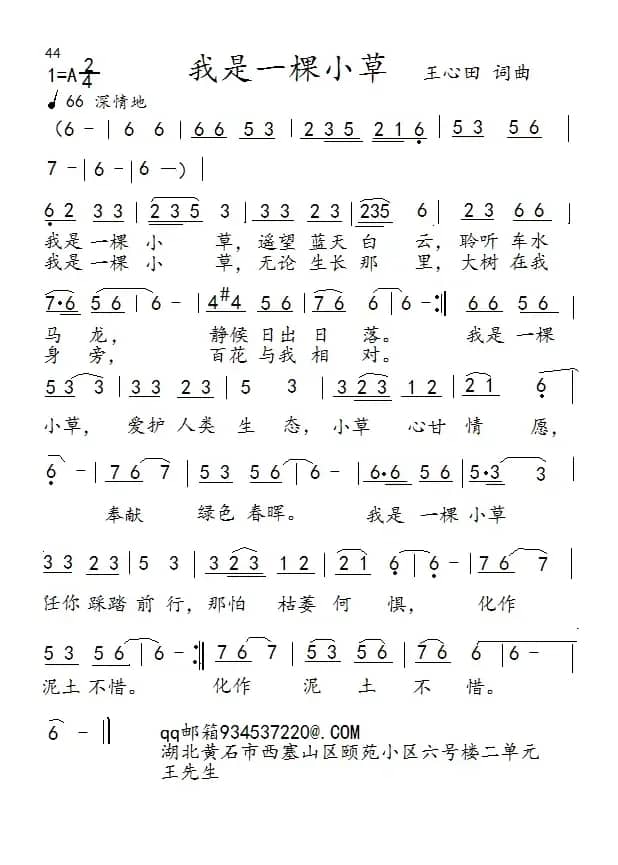 44
1=A 2/4 我是一棵小草 王心田 词曲
♩ 66 深情地
(6 - | 6 6 | 66 53 | 235 216 | 53 56 |
7 - | 6 - | 6 —) |
62 33 | 235 3 | 33 23 | 235 6 | 23 66 |
我是 一棵 小 草，遥望 蓝天 白 云，聆听 车水
我是 一棵 小 草，无论 生长 那 里，大树 在我
7·6 56 | 6 - | 4#4 56 | 76 6 | 6 - :‖ 66 56 |
马 龙， 静候 日出 日 落。 我是 一棵
身 旁， 百花 与我 相 对。
53 3 | 33 23 | 5 3 | 323 12 | 21 6 |
小草， 爱护 人类 生 态，小草 心甘 情 愿，
6 - | 76 7 | 53 56 | 6 - | 6·6 56 | 5·3 3 |
奉献 绿色 春晖。 我是 一棵 小草
33 23 | 5 3 | 323 12 | 21 6 | 6 - | 76 7 |
任你 踩踏 前 行，那怕 枯萎 何 惧， 化作
53 56 | 6 - :‖ 76 7 | 53 56 | 6 - | 6 - |
泥土 不惜。 化作 泥 土 不 惜。
6 - ‖ qq邮箱934537220@.COM
湖北黄石市西塞山区颐苑小区六号楼二单元
王先生